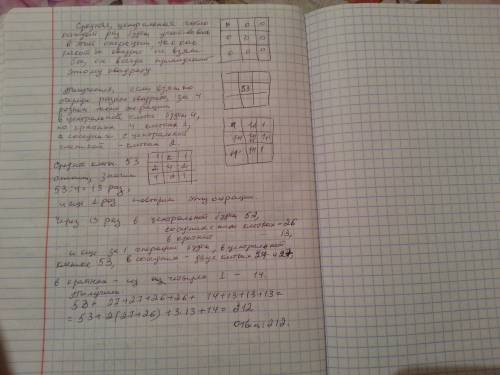 Средняя, центральная клетка
каждый раз будет участвовать
в этой операции, т.к.
какой бы квадрат не взяли
бы, он всегда принадлежит
этому квадрату
0 0
0 0 0
0 0 0
53
Получается, если взять по
очереди разные квадраты, за 4
разных таких операции
в центральной клетке будет 4,
по краям 4 клетках 1,
а соседних с центральной
клеткой - клетках 2.
Средняя клетка 53
1 2 1
2 4 2
1 2 1
значит
53:4 = 13 раз,
и еще 1 раз повторим эту операцию.
Через 13 раз в центральной будет 52,
соседних с ним клетках - 26
в крайних 13,
и еще за 1 операцию будет, в центральной
клетке 53, в соседних - двух клетках 27 и 27,
в крайних - из четырех 1 - 14.
Получим
53 + 27+27+26+26 + 14+13+13+13 =
= 53 + 2(27+26) + 3·13 + 14 = 212
Ответ: 212.